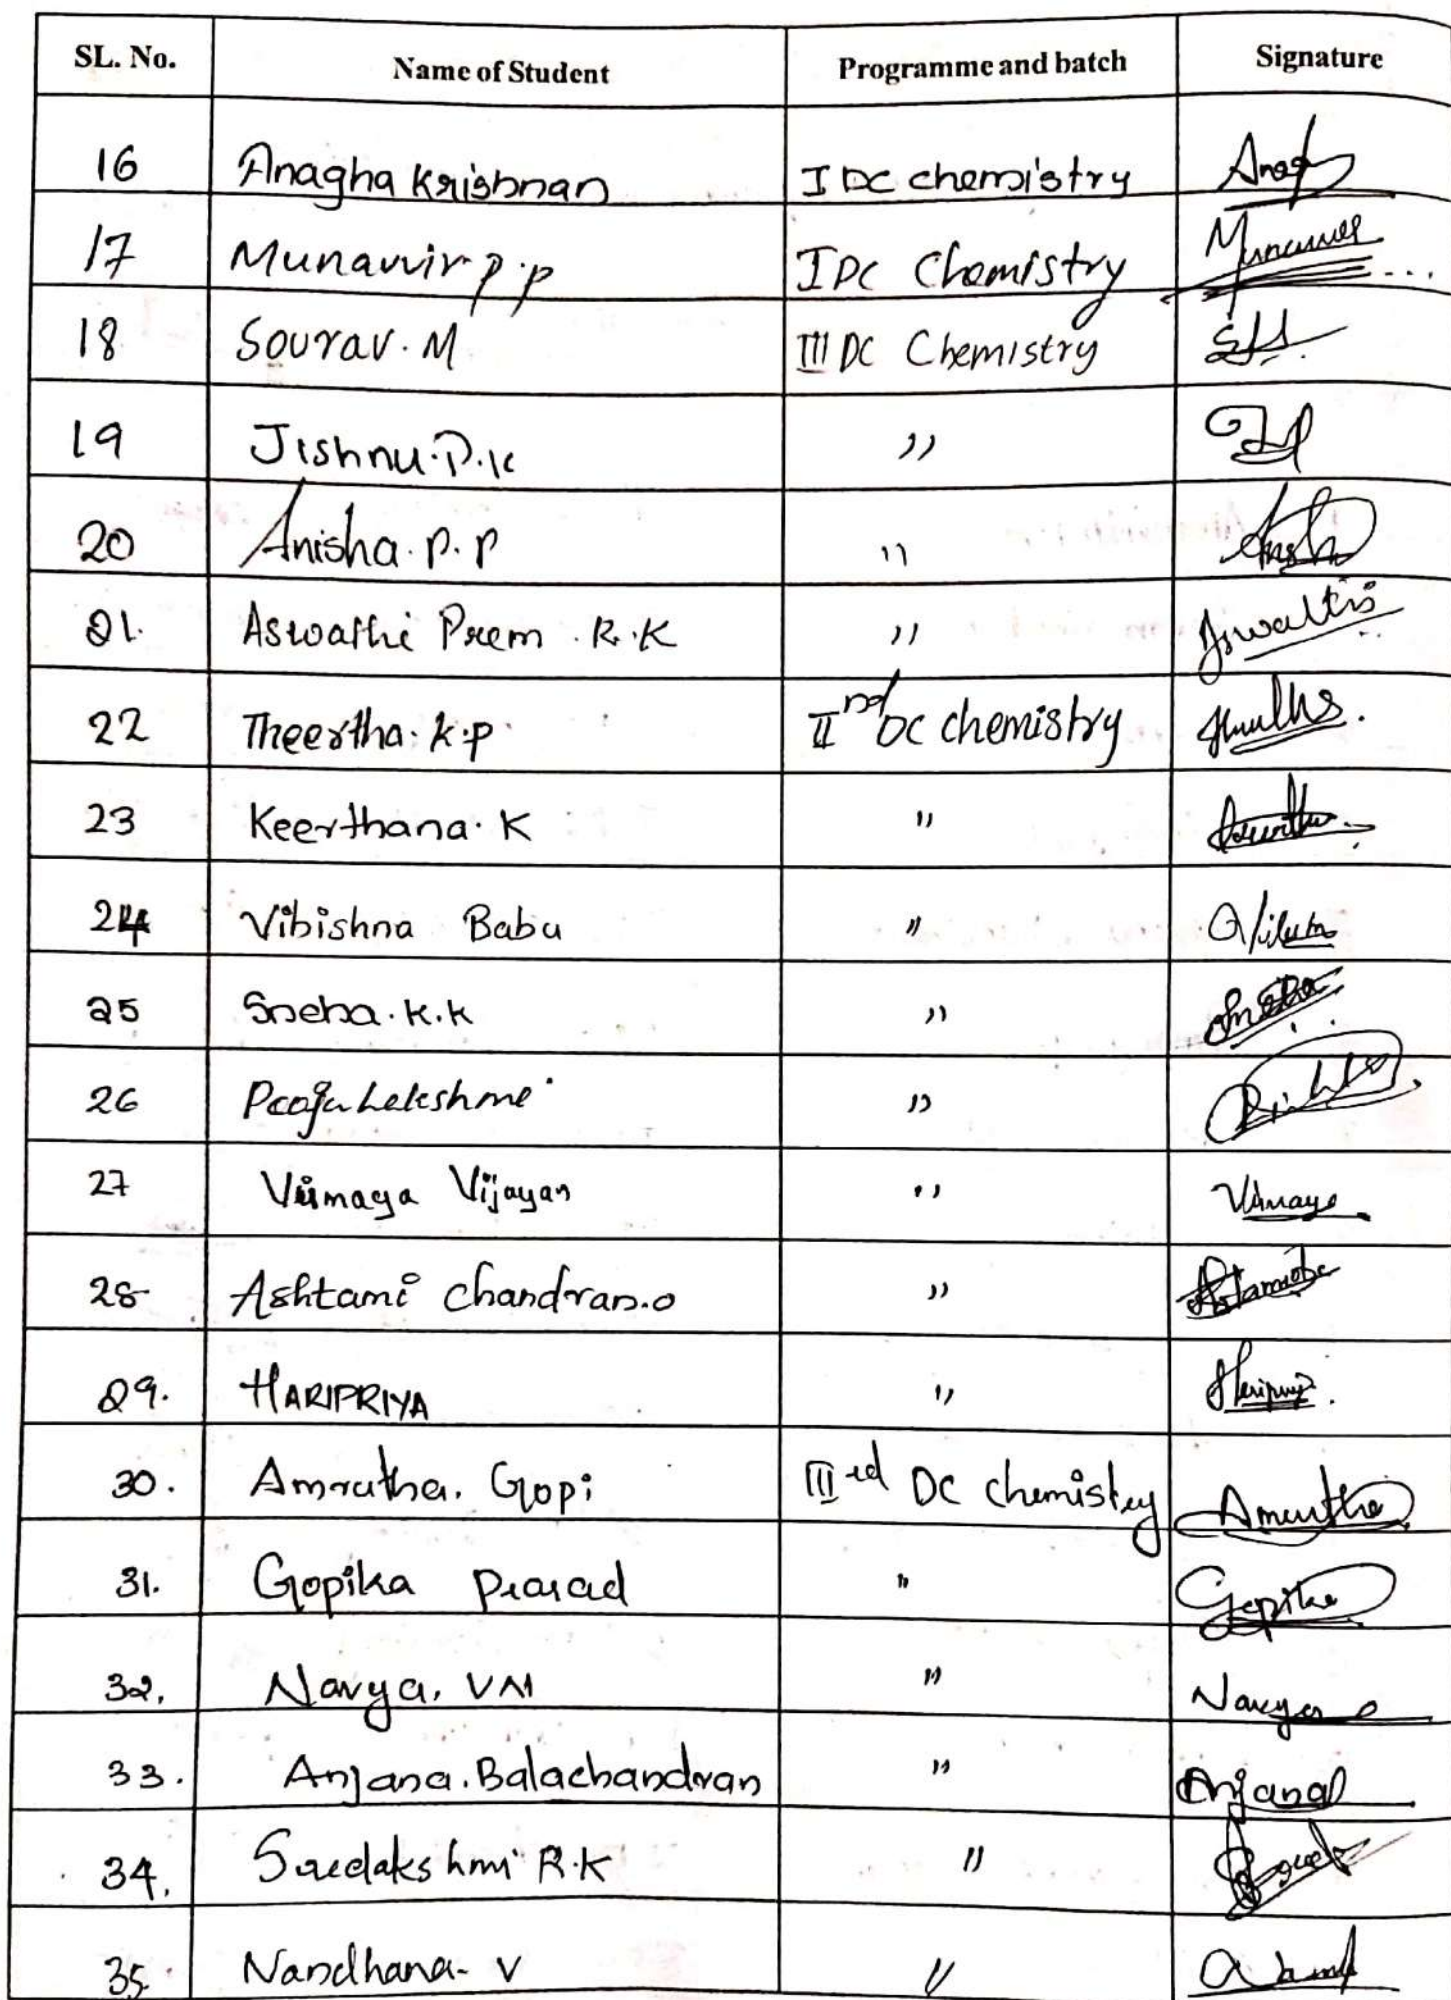 SL. No. Name of Student Programme and batch Signature
16 Anagha Krishnan I DC chemistry
17 Munavvir p.p I DC Chemistry
18 Sourav. M III DC Chemistry
19 Jishnu. P. K ,,
20 Anisha. P. P ,,
21. Aswathi Prem. R. K ,,
22 Theertha. k.p II nd DC chemistry
23 Keerthana. K ,,
24 Vibishna Babu ,,
25 Sneha. K. K ,,
26 Pooja Lekshmi ,,
27 Vismaya Vijayan ,, Vismaya
28 Ashtami Chandran. o ,,
29. HARIPRIYA ,,
30. Amrutha. Gopi III rd DC chemistry Amrutha
31. Gopika Prasad ,, Gopika
32. Navya. VM ,, Navya
33. Anjana. Balachandran ,, Anjana
34. Sreelakshmi R.K ,,
35. Nandhana. V ,,